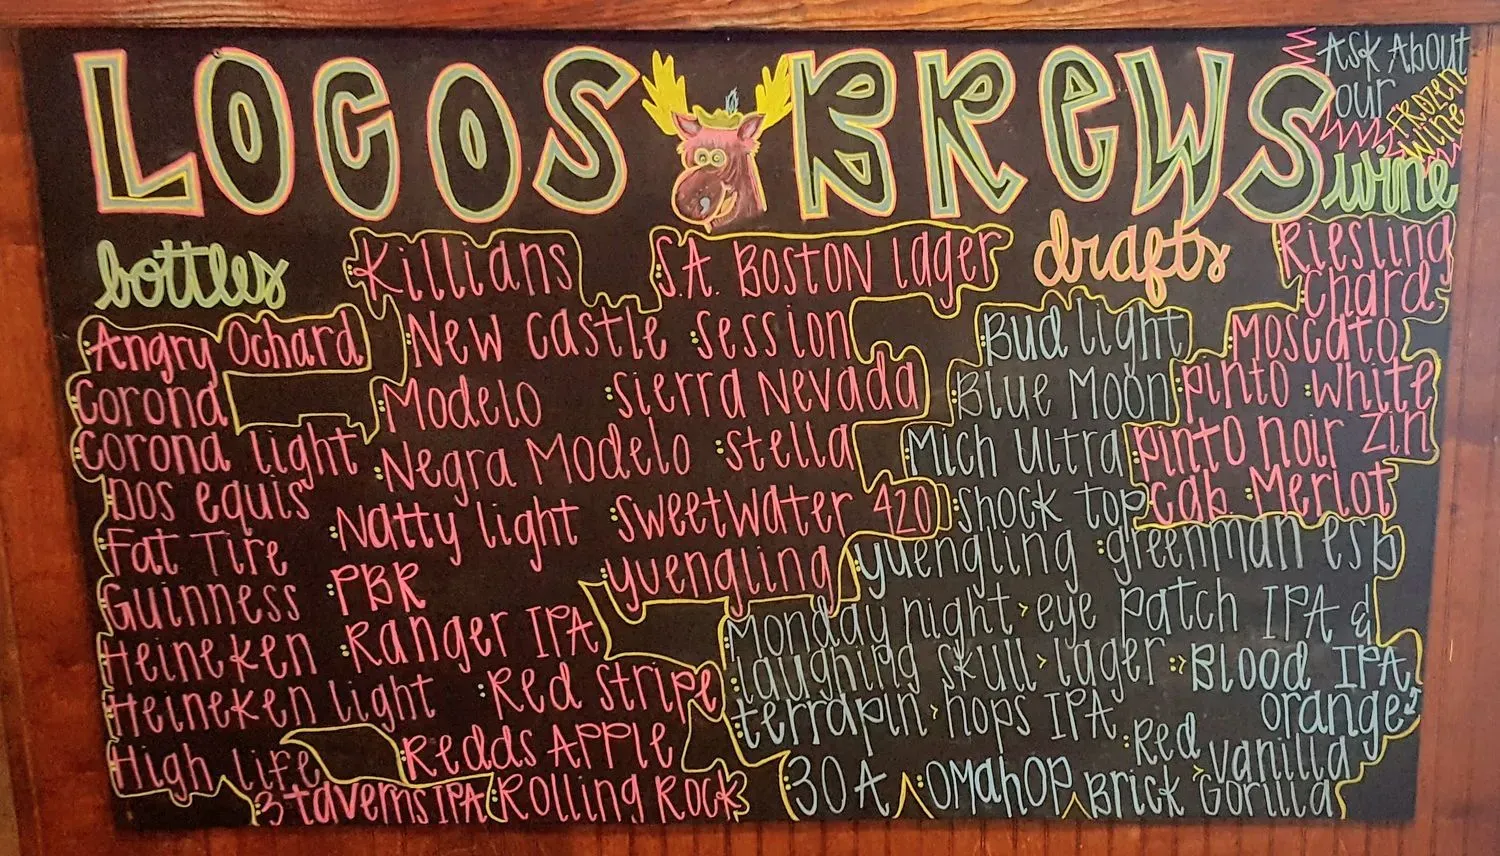 LOCOS BREWS
Ask About
our
FROZEN
Wine
wine
bottles
Killians
S.A. Boston lager
Angry Ochard
New Castle
Session
Corona
Modelo
Sierra Nevada
Corona light
Negra Modelo
Stella
Dos equis
Natty light
Sweetwater 420
Fat Tire
PBR
yuengling
Guinness
Ranger IPA
Heineken
Red Stripe
Heineken light
Redds Apple
High life
3 taverns IPA
Rolling Rock
drafts
Bud light
Blue Moon
Mich Ultra
Shock top
yuengling
greenman esb
Monday night > eye patch IPA &
laughing skull > lager
> Blood IPA
orange
terrapin > hops IPA
Red
Brick
> vanilla
Gorilla
30A
OMAHOP
Riesling
Chard.
Moscato
pinto
white
pinto noir
Zin
Cab.
Merlot